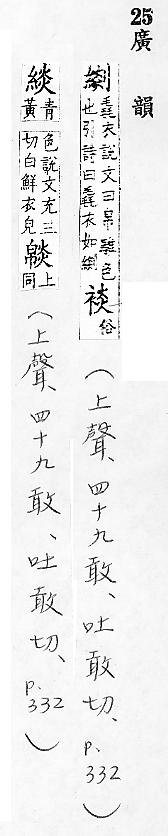 25 廣韻
毳衣說文曰帛騅色
也引詩曰毳衣如
裧俗
（上聲、四十九敢、吐敢切、p.332）
緂青
黃
色說文充三
切白鮮衣皃
上
同
（上聲、四十九敢、吐敢切、p.332）